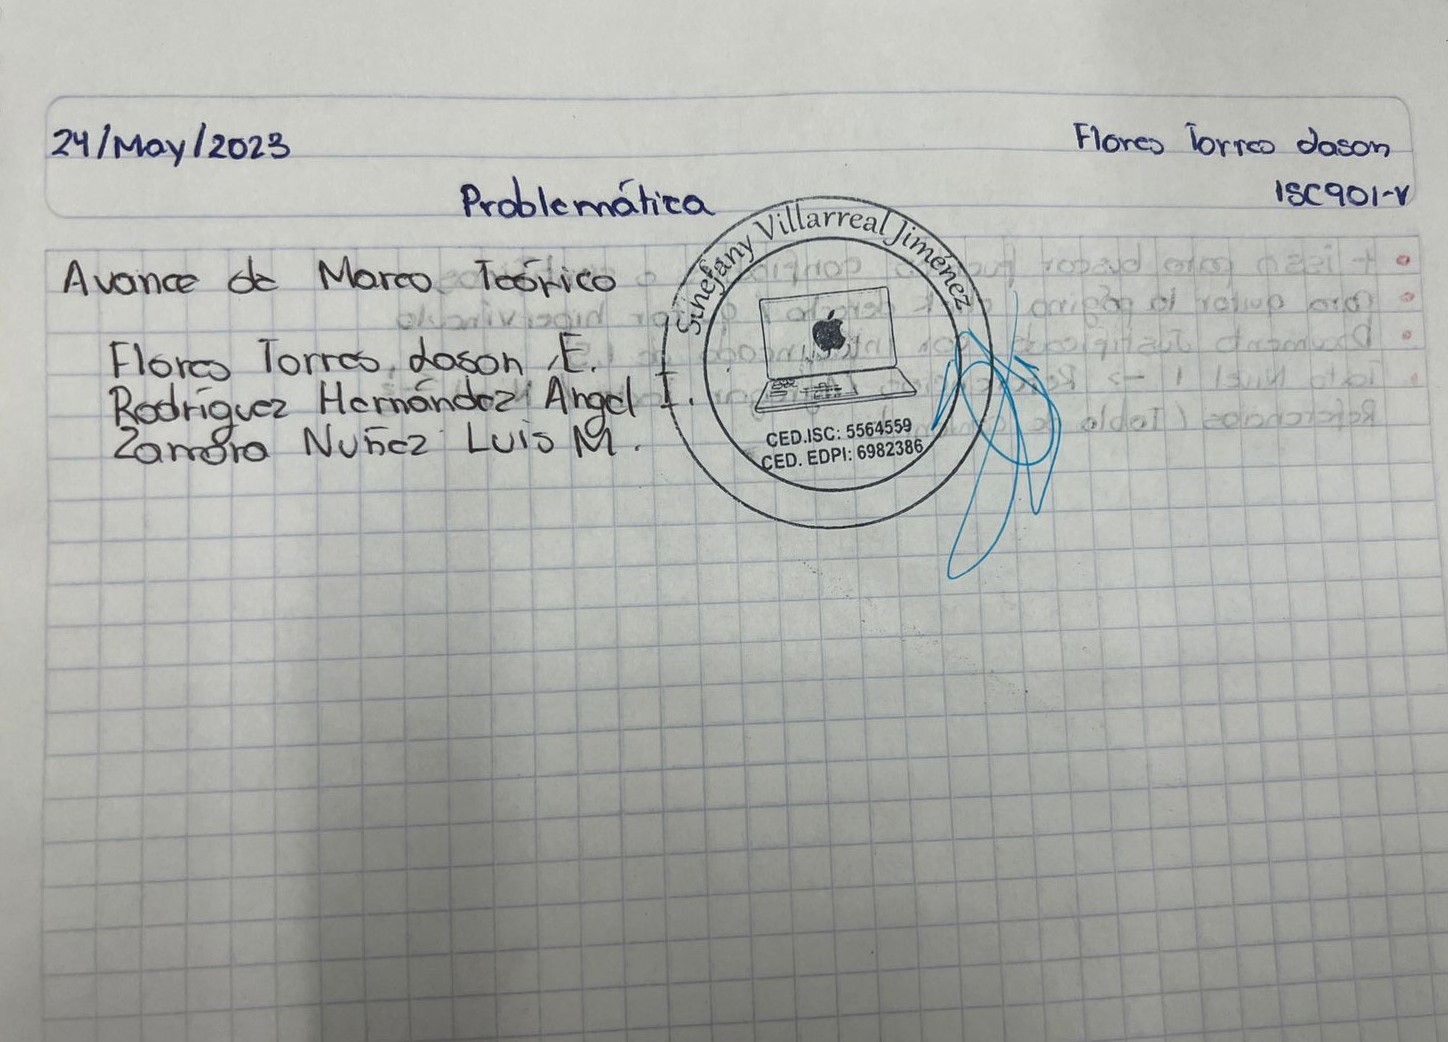 24/May/2023
Flores Torres Jason
ISC901-V
Problemática
Avance de Marco Teórico
Flores Torres Jason E.
Rodríguez Hernández Angel I.
Zamora Nuñez Luis M.
Sinefany Villarreal Jiménez
CED.ISC: 5564559
CED. EDPI: 6982386